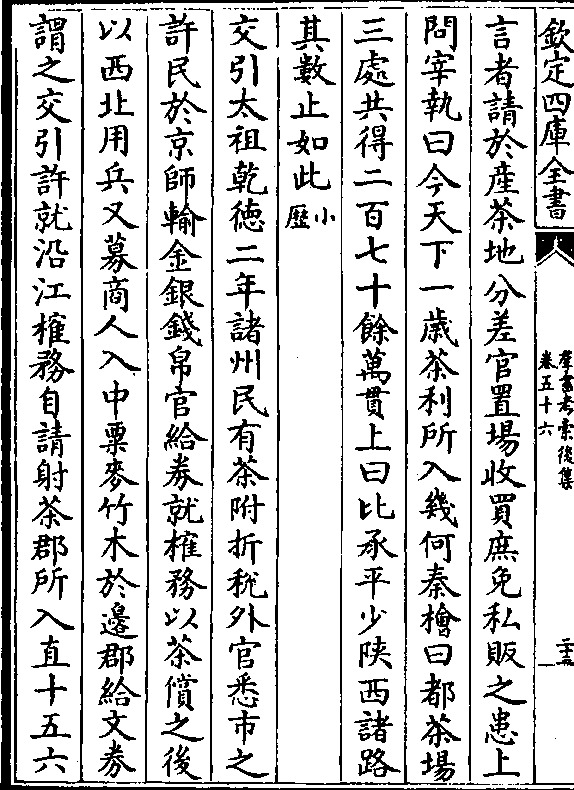 欽定四庫全書
羣書考索後集
卷五十六
二十五
言者請於産茶地分差官置場收買庶免私販之患上
問宰執曰今天下一歲茶利所入幾何秦檜曰都茶場
三處共得二百七十餘萬貫上曰比承平少陝西諸路
其數止如此小歷
交引太祖乾德二年諸州民有茶附折稅外官悉市之
許民於京師輸金銀錢帛官給劵就榷務以茶償之後
以西北用兵又募商人入中粟麥竹木於邊郡給文劵
謂之交引許就沿江榷務自請射茶郡所入直十五六